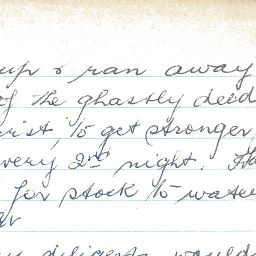 up & ran away
of the ghastly deed
rist, to get stronger,
very 2nd night.
for stock to wate
er
diligently would